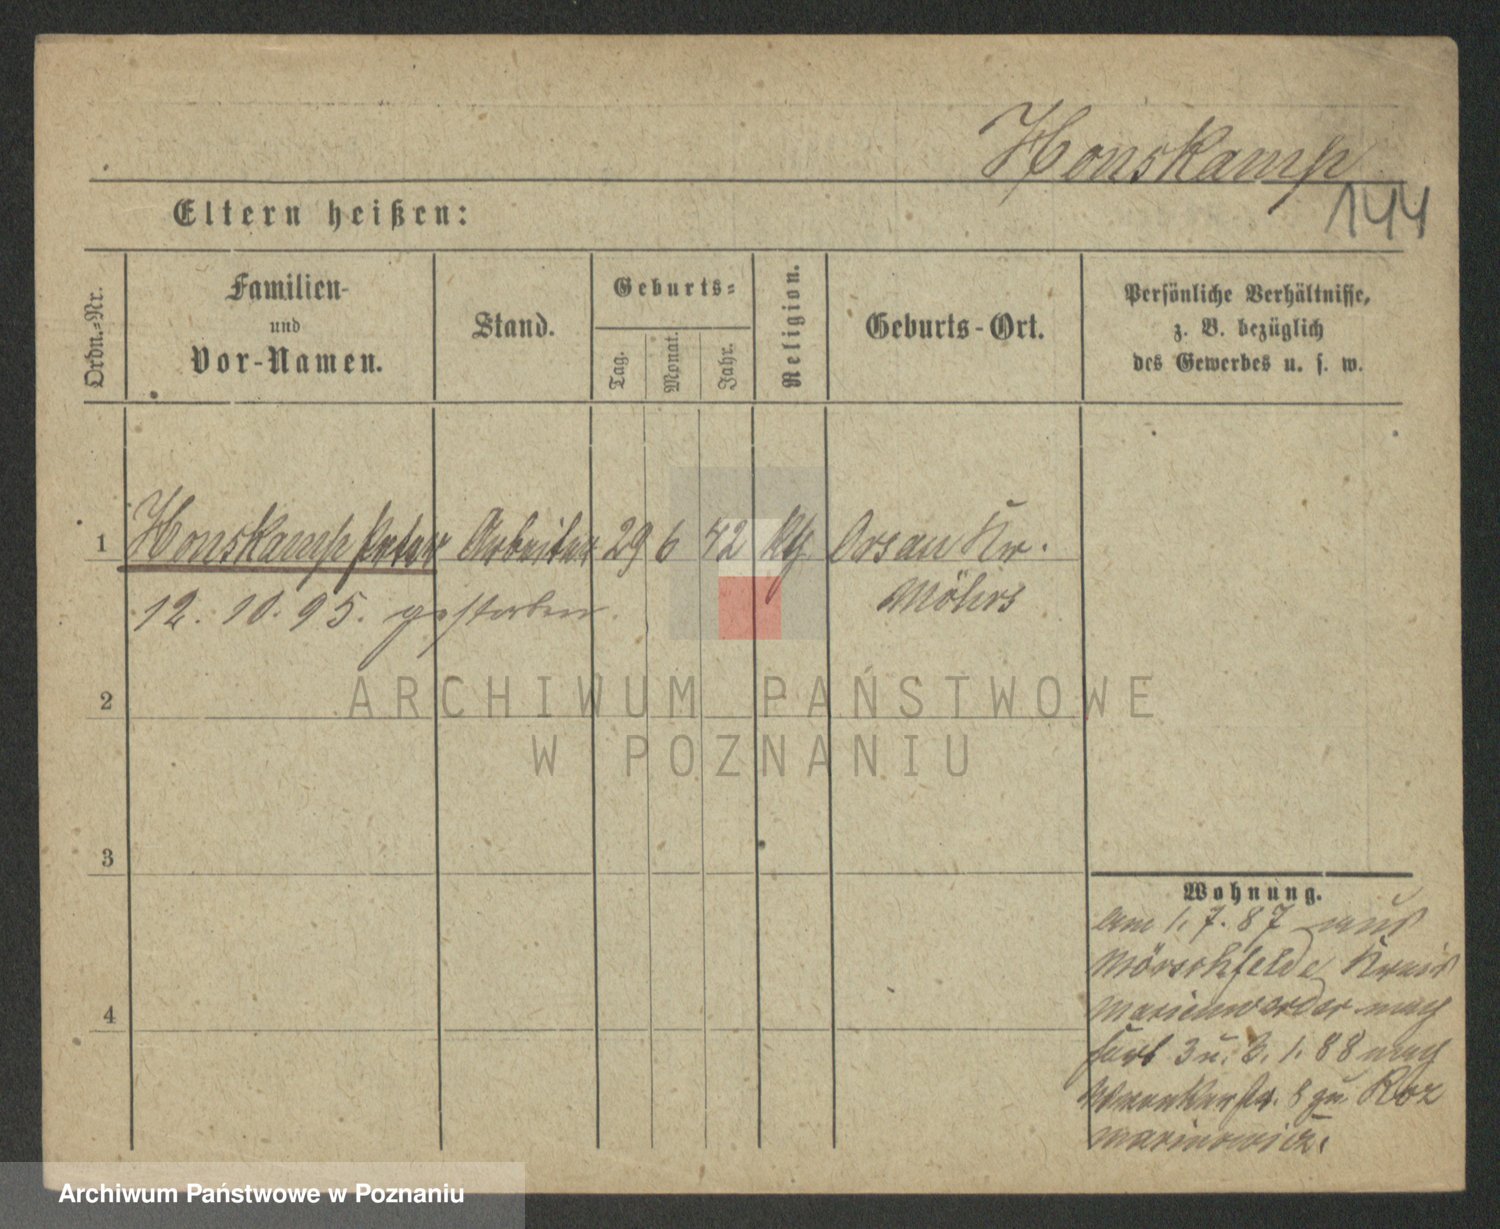 Honskamp
144
Eltern heißen:
Ordn.-Nr.
Familien-
und
Vor-Namen.
Stand.
Geburts-
Tag.
Monat.
Jahr.
Religion.
Geburts-Ort.
Persönliche Verhältnisse,
z. B. bezüglich
des Gewerbes u. s. w.
1 Honskamp Peter Arbeiter 29 6 42 kth. Orsau Kr.
Mörs
12. 10. 95. gestorben.
2
ARCHIWUM PAŃSTWOWE
W POZNANIU
3
4
Wohnung.
Am 1. 7. 87 aus
Kreis
Marienwerder nach
3 u. 6. 1. 88 nach
8 zu
Archiwum Państwowe w Poznaniu